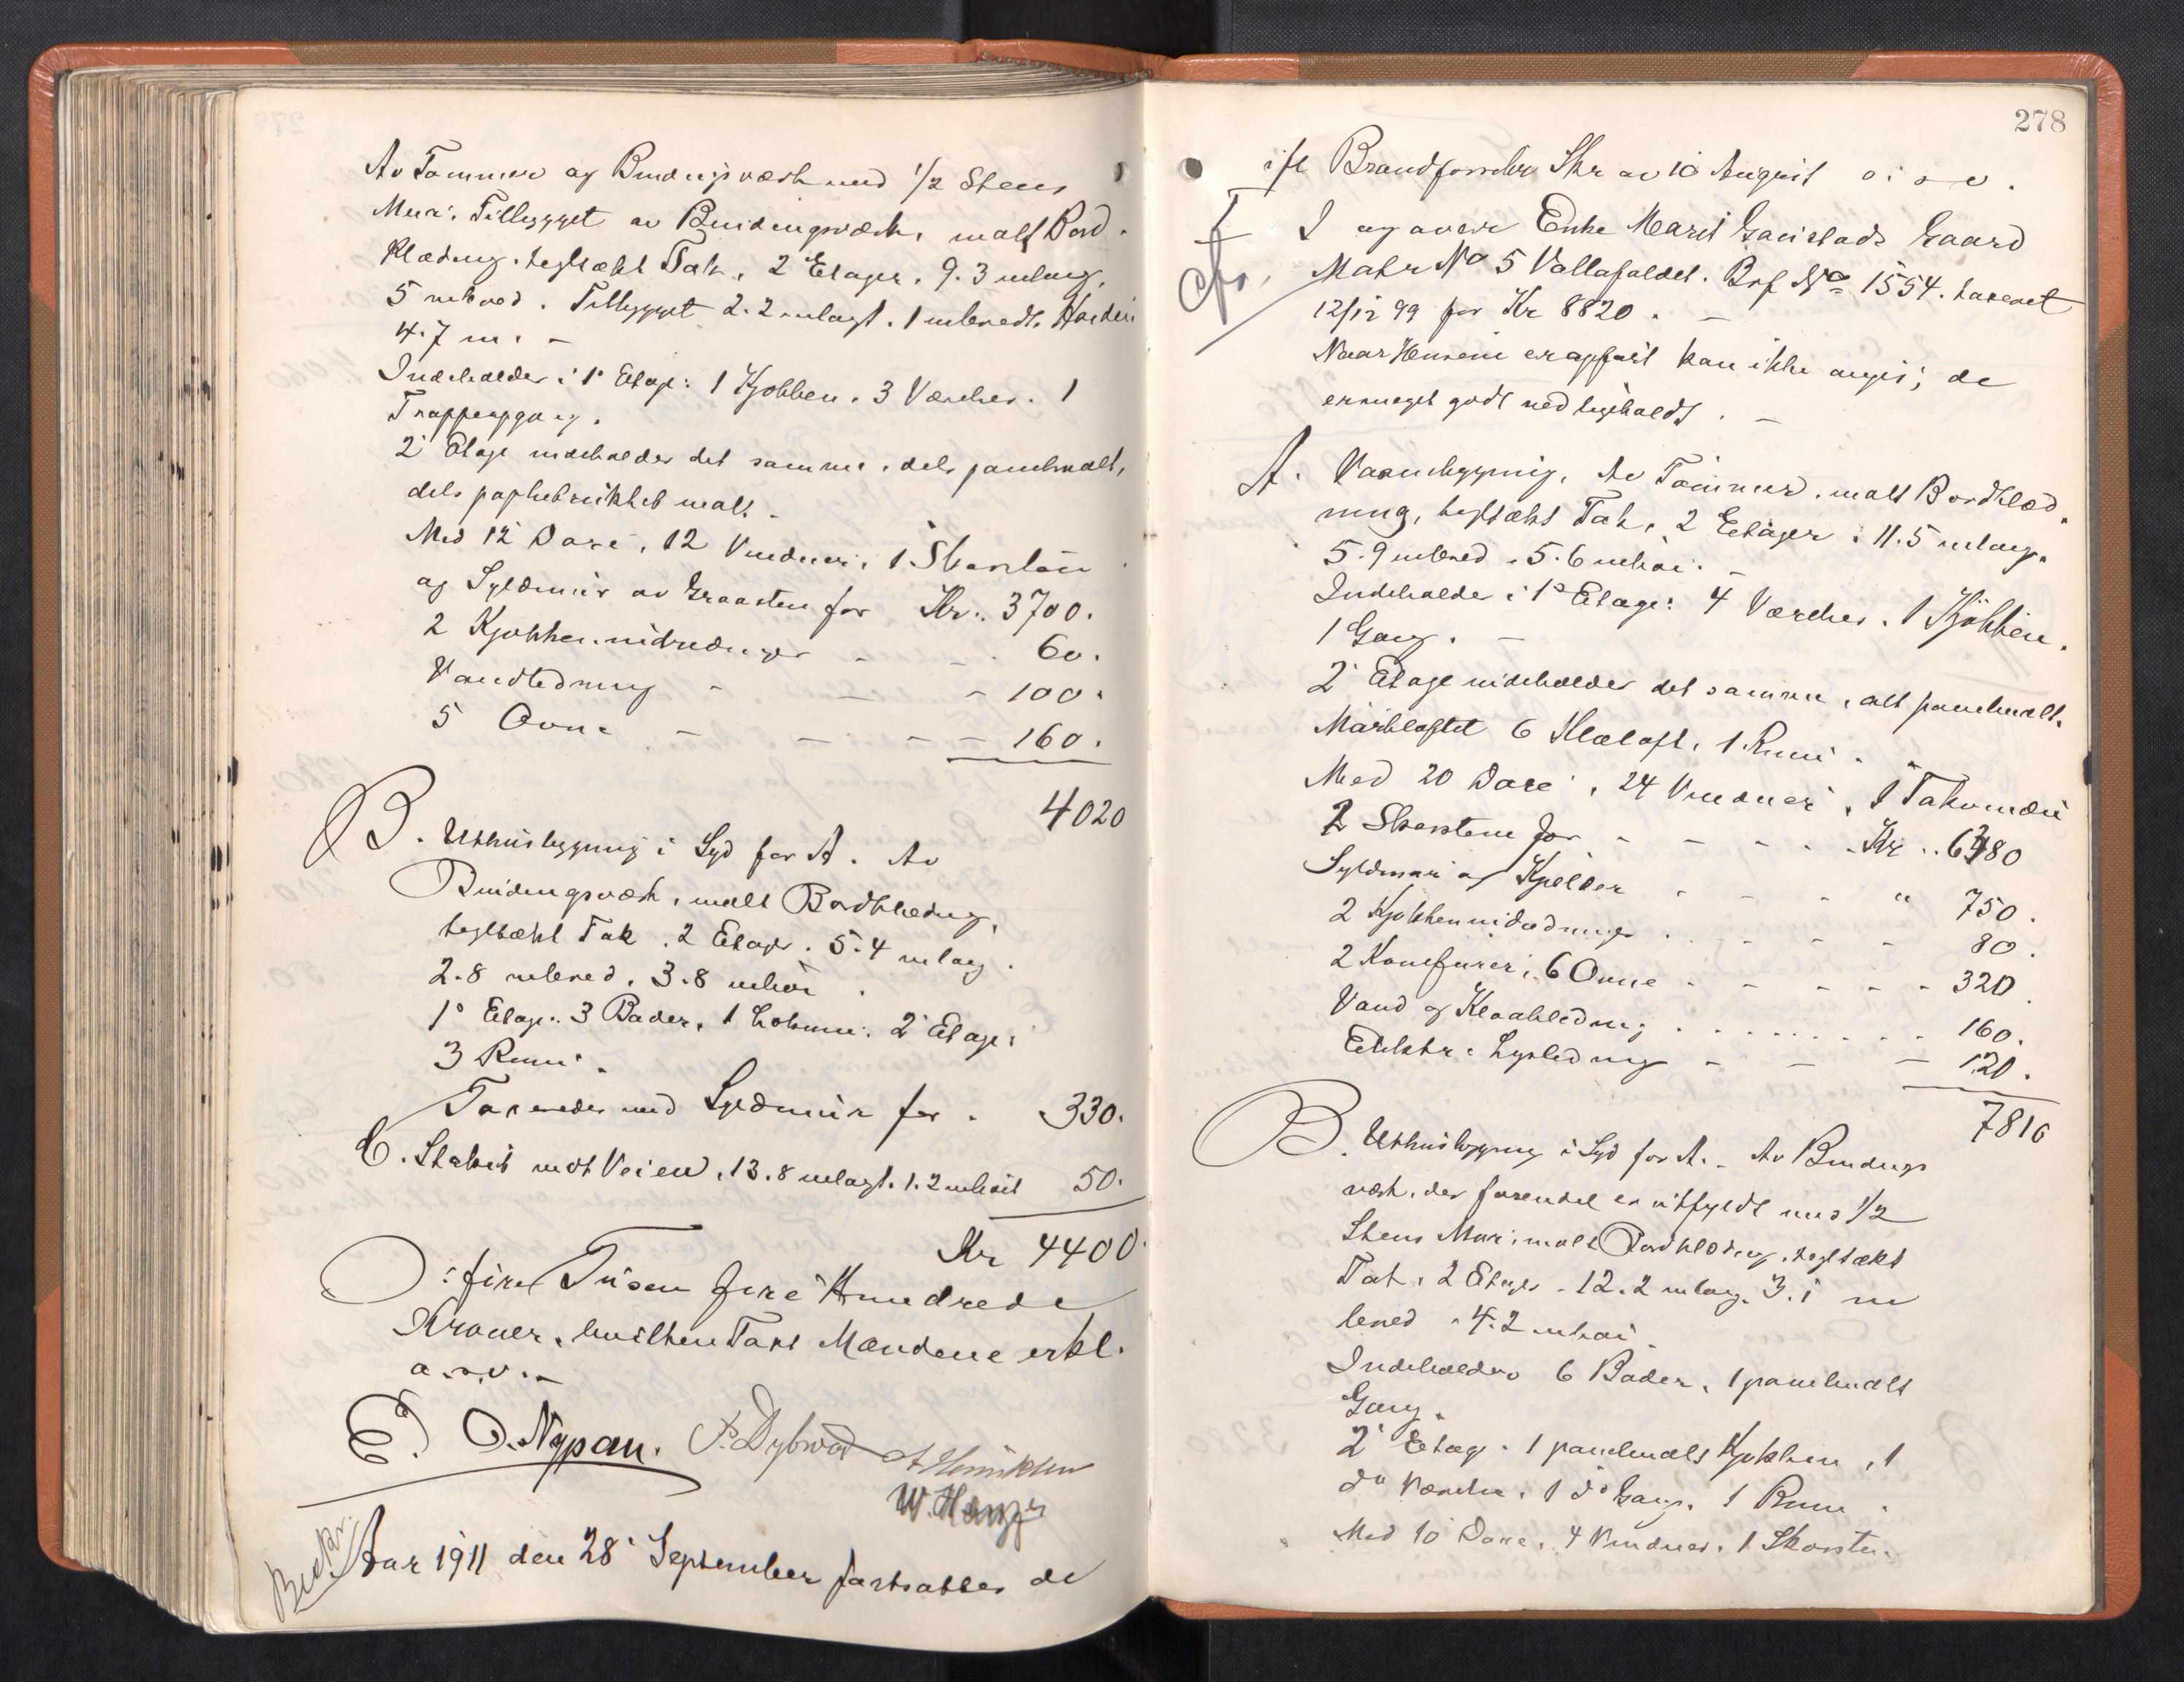 Av Tømmer og Bindingsværk med 1/2 Stens
Mur. Tilbygget av Bindingsværk, malt Bord-
klædning, teglsækt Tak, 2 Etager, 9.3 m lang,
5 m bred. Tilbygget 2.2 m lagt. 1 m bredt. Høiden
4.7 m. -
Indeholder i 1' Etage: 1 Kjøkken, 3 Værelser. 1
Trappeopgang.
2' Etage indeholder det samme, dels panelmalt,
dels malt.
Med 12 Døre, 12 Vinduer, 1 Skorsten
og Syldmur av Graasten for Kr. 3700.
2 Kjøkkenindredninger - - 60.
Vandledning - — - 100.
5 Ovne — — - — 160.
4020
B. Uthusbygning i Syd for A. Av
Bindingsværk, malt Bordklædning,
teglsækt Tak, 2 Etager. 5.4 m lang.
2.8 m bred, 3.8 m høi.
1' Etage: 3 Boder, 1 Lokum. 2' Etage:
3 Rum.
Taxeredes med Syldmur for - 330.
C. Stakit mot Veien, 13.8 m lagt. 1.2 m høit 50.
Kr 4400.
O: fire Tusen fire Hundrede
Kroner, hvilken Taxt Mændene erkl.
o.s.v. -
E. O. Nypan. P. Dybwad A Henriksen
W. Hansen
Beskr.
Aar 1911 den 28' September fortsattes de
278
ifl Brandforsikr Skr av 10 August o.s.v.
I og over Enke Marit Gaustads Gaard
cfr.
Matr No 5 Vollafaldet. Brf No 1554. taxeret
12/12 99 for Kr 8820. -
Naar Husene er opført kan ikke angis; de
er meget godt vedligeholdt. -
A. Vaanebygning, Av Tømmer, malt Bordklæd-
ning, teglsækt Tak, 2 Etager. 11.5 m lang.
5.9 m bred, 5.6 m høi. -
Indeholder i 1' Etage: 4 Værelser. 1 Kjøkken.
1 Gang. -
2' Etage indeholder det samme, alt panelmalt.
Mørkloftet 6 Klæloft, 1 Rum.
Med 20 Døre, 24 Vinduer, 1 Takvindu
2 Skorstene for - - - - Kr. 6380
Syldmur og Kjelder - - - " 750.
2 Kjøkkenindredninger - - - 80.
2 Komfurer, 6 Ovne - - - - 320.
Vand og Kloakledning - - - - 160.
Elektr. Lysledning - — — 120.
7810
B. Uthusbygning i Syd for A. - Av Bindings
værk, der for en del er utfyldt med 1/2
Stens Mur, malt Bordklædning, teglsækt
Tak, 2 Etager. 12.2 m lang. 3.1 m
bred - 4.2 m høi.
Indeholder 6 Boder, 1 panelmalt
Gang.
2' Etage. 1 panelmalt Kjøkken, 1
do Værelse, 1 do Gang, 1 Rum.
Med 10 Døre, 4 Vinduer, 1 Skorsten